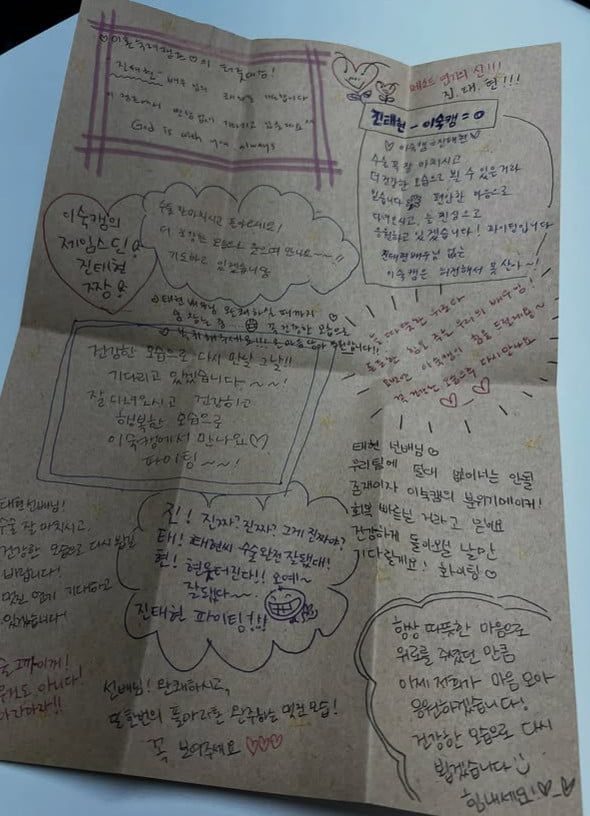 진태현 배우님의
God is with you always
메소드 연기의 신!!!
진.태.현!!!
진태현 - 이숙캠 = 0
♡ 이숙캠=진태현
수술 꼭 잘 마치시고
더 건강한 모습으로 뵐 수 있을거라
믿습니다 편안한 마음으로
다녀오시고 늘 진심으로
응원하고 있겠습니다! 화이팅입니다
진태현배우님 없는
이숙캠은 허전해서 못산다~!
이숙캠의
제임스딘!
진태현
짱!
수술 잘 마치시고 돌아오세요!
더 건강한 모습으로 웃으며 만나요~~!!
기도하고 있겠습니당
태현 배우님 완쾌하실 때까지
꼭 건강한 모습으로
건강한 모습으로 다시 만날 그날!!
기다리고 있겠습니다~~!
잘 다녀오시고 건강하고
행복한 모습으로
이숙캠에서 만나요♡
파이팅~~!
든든한 힘을 주는 우리의 배우님!
이숙캠이 힘을 드릴게요~
꼭 건강한 모습으로 다시 만나요
태현 선배님♡
우리팀에 절대 없어서는 안될
존재이자 이숙캠의 분위기메이커!
회복 빠르실 거라고 믿어요
건강하게 돌아오실 날만
기다릴게요! 화이팅♡
태현선배님!
수술 잘 마치시고
건강한 모습으로 다시 뵙길
바랍니다!
멋진 연기 기대하고
있겠습니다!
진! 진짜? 진짜? 그게 진짜야?
태! 태현씨 수술 완전 잘됐대!
현! 현웃터진다!! 오예~
잘됐다~~
진태현 파이팅!!!
뭐도 아니다!
선배님! 완쾌하시고,
또 한번의 풀마라톤 완주하는 멋진 모습!
꼭 보여주세요 ♡♡♡
항상 따뜻한 마음으로
위로를 주셨던 만큼
이제 저희가 마음 모아
응원하겠습니다!
건강한 모습으로 다시
뵙겠습니다 :)
힘내세요!